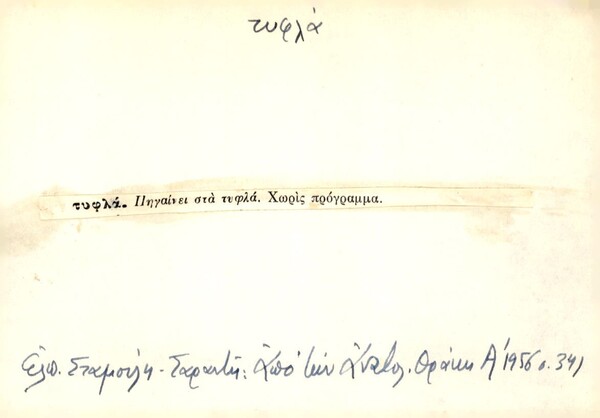 τυφλά
τυφλά. Πηγαίνει στὰ τυφλά. Χωρὶς πρόγραμμα.
Ἐλπ. Σταμούλη - Σαραντῆ: Ἀπὸ τὴν Ἀνατολ. Θράκη Α' 1956 σ. 341